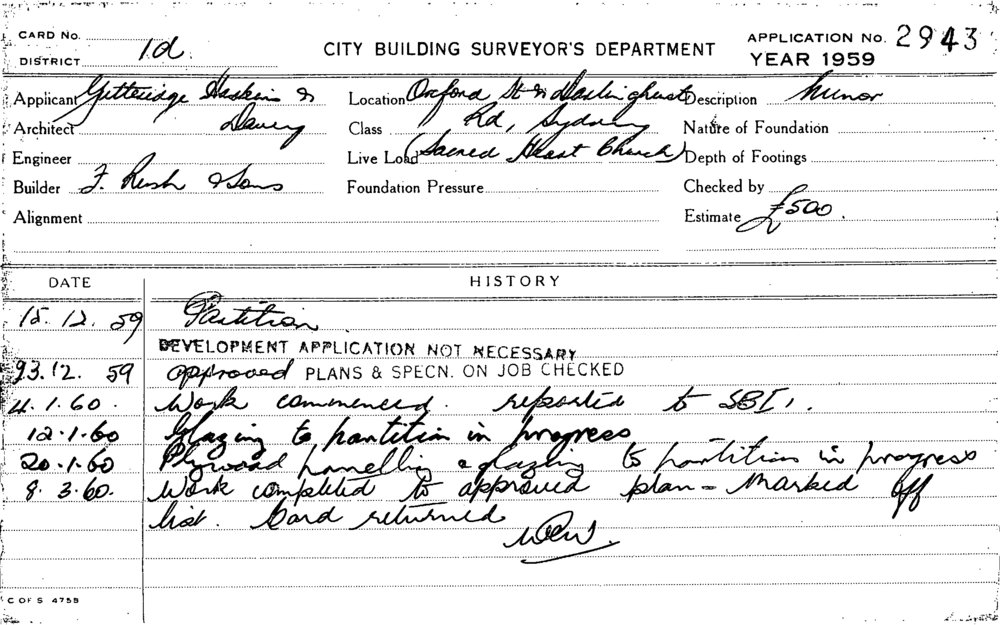 CARD No.
DISTRICT 1d.
CITY BUILDING SURVEYOR'S DEPARTMENT
APPLICATION No. 2943
YEAR 1959
Applicant Gitteridge Haskins &
Location Oxford St & Darlinghurst
Description Minor
Architect Davey
Class Rd, Sydney
Nature of Foundation
Engineer
Live Load (Sacred Heart Church)
Depth of Footings
Builder F. Rush & Sons
Foundation Pressure
Checked by
Alignment
Estimate £500.
DATE HISTORY
15.12.59 Partition
DEVELOPMENT APPLICATION NOT NECESSARY
23.12.59 approved PLANS & SPECN. ON JOB CHECKED
4.1.60. Work commenced. reported to SBI.
12.1.60 Glazing to partition in progress
20.1.60 Plywood panelling & glazing to partition in progress
8.3.60. Work completed to approved plan - Marked off
list. Card returned
C OF S 4755